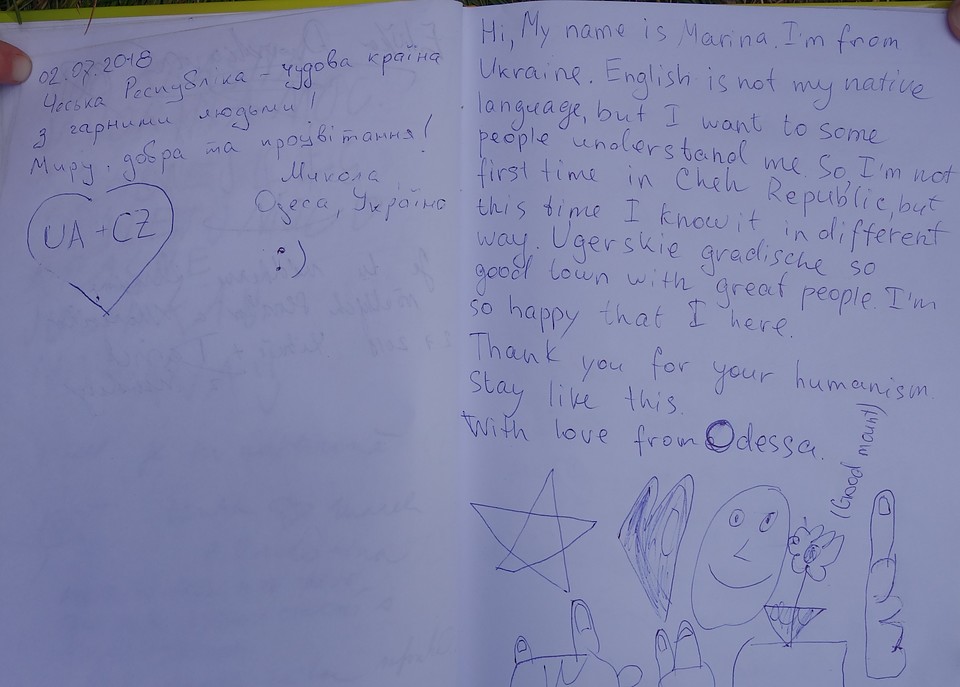 02.07.2018
Чеська Республіка - чудова країна
з гарними людьми!
Миру, добра та процвітання!
Микола
Одеса, Україно
:)
UA + CZ
Hi, My name is Marina. I'm from
Ukraine. English is not my native
language, but I want to some
people understand me. So, I'm not
first time in Cheh Republic, but
this time I know it in different
way. Ugerskie gradische so
good town with great people. I'm
so happy that I here.
Thank you for your humanism.
Stay like this.
With love from Odessa.
(Good mount)